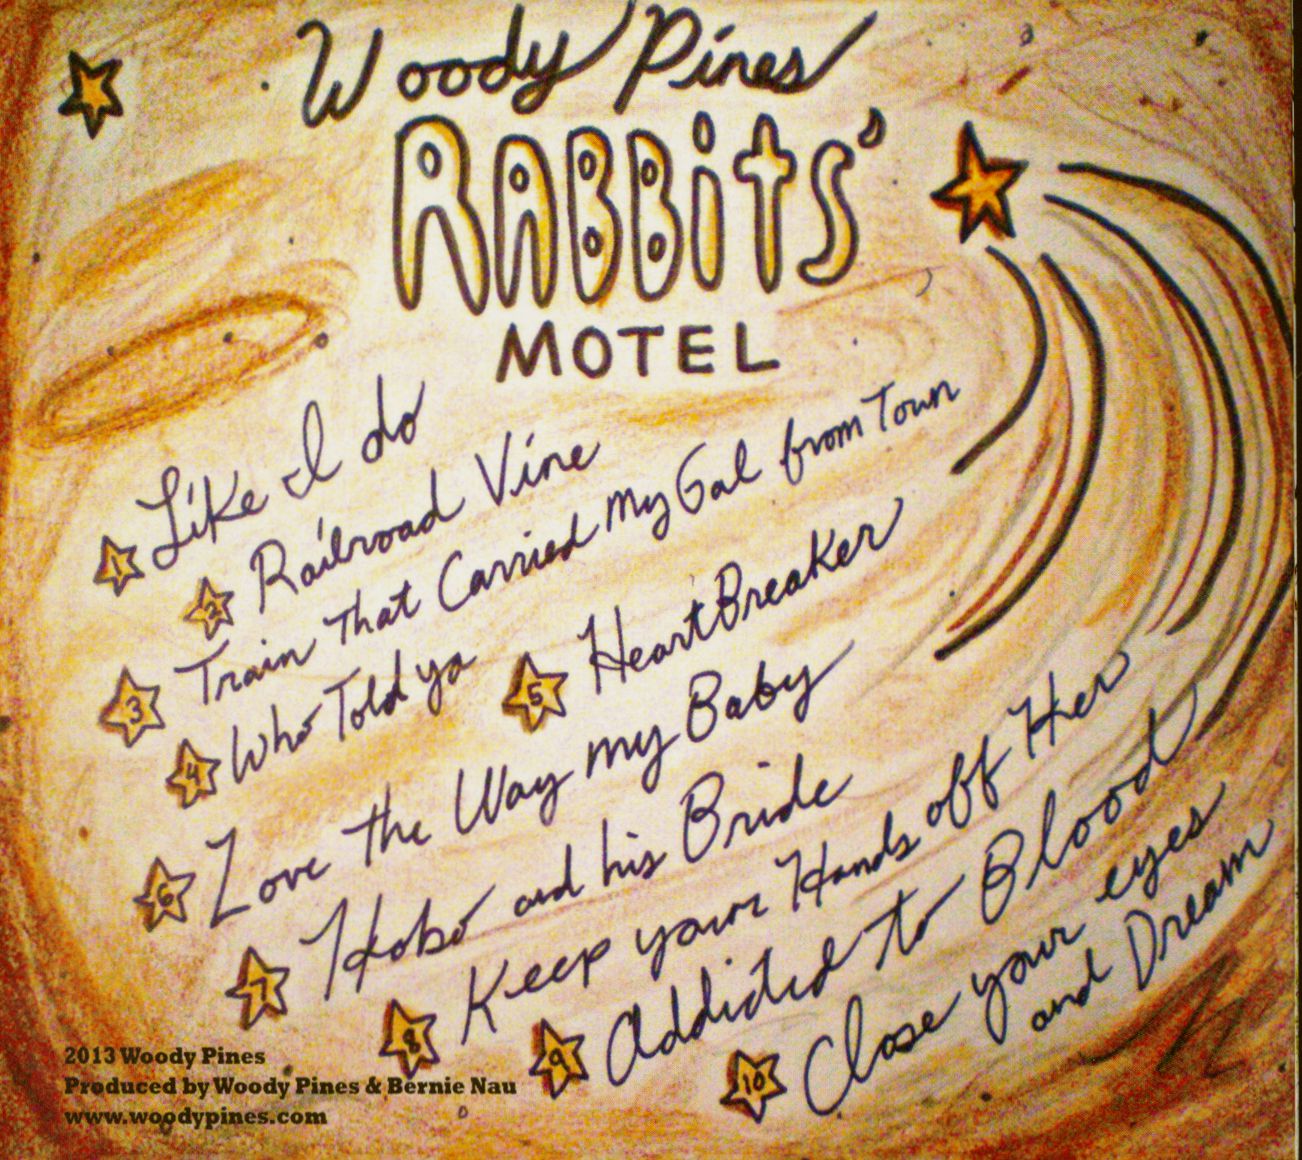 Woody Pines
RABBiTS'
MOTEL
1 Like I do
2 Railroad Vine
3 Train That Carried My Gal from Town
4 Who Told ya
5 HeartBreaker
6 Love the Way my Baby
7 Hobo and his Bride
8 Keep your Hands off Her
9 Addicted to Blood
10 Close your eyes
and Dream
2013 Woody Pines
Produced by Woody Pines & Bernie Nau
www.woodypines.com